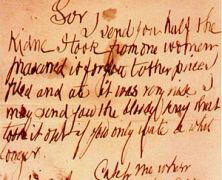 Sor
I send you half the
Kidne I took from one women
prasarved it for you tother piece I
fried and ate it was very nise I
may send you the bloody knif that
took it out if you only wate a whil
longer
Catch me when